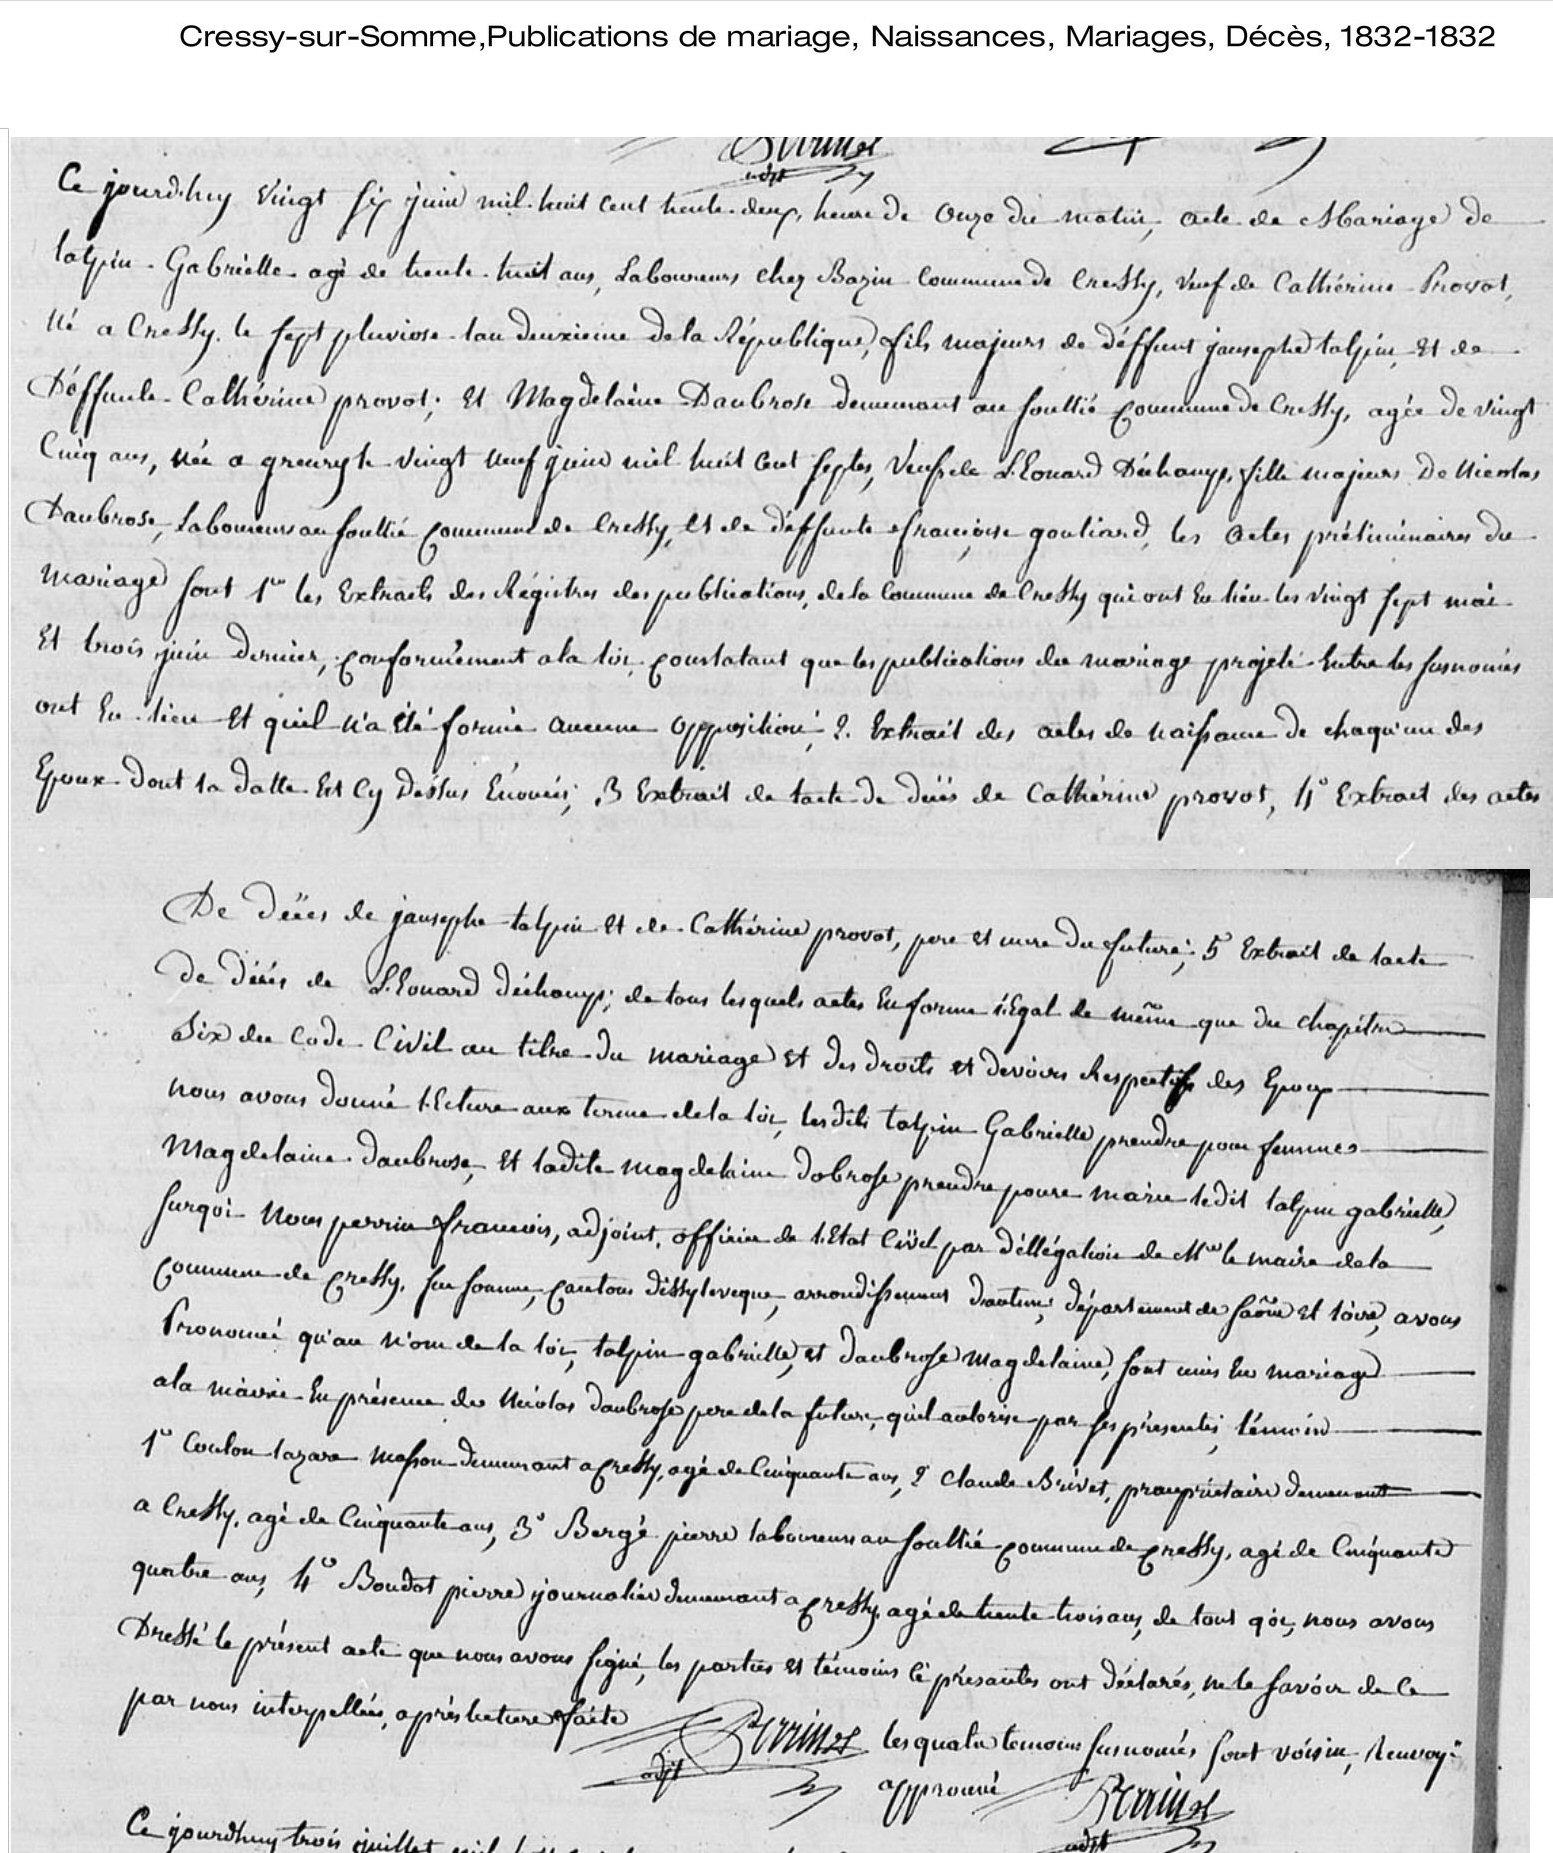 Cressy-sur-Somme,Publications de mariage, Naissances, Mariages, Décès, 1832-1832
Perrin
adjt
Ce jourd'huy vingt six juin mil huit cent trente deux, heure de onze du matin, acte de Mariage de
talpin Gabrielle agé de trente huit ans, Laboureurs chez Bazin Commune de Cressy, veuf de Cathérine Provot,
Né a Cressy le sept pluviose lan deuxieme de la République, fils majeurs de déffunt jauseph talpin, Et de
Déffunte Cathérine provot; Et Magdelaine Daubrose demeurant au souttié Commune de Cressy, agée de vingt
Cinq ans, Née a grury le vingt neuf juin mil huit cent septes, Veufe de L.Eonard Déchamps, fille majeurs De Nicolas
Daubrose, Laboureurs au souttié Commune de Cressy, Et de déffunte françoise gouliard, les actes préliminaires du
mariage sont 1er les Extraits des Régistres des publications, de la Commune de Cressy qui ont Eu lieu les vingt sept mai
Et trois juin dernier, conformément a la loi, constatant que les publications du mariage projeté Entre les susnomés
ont Eu lieu Et qu'il n'a été formé aucune opposition; 2. Extrait des actes de naissance de chaqu'un des
Epoux dont la datte Est Cy Dessus Enoncés; 3 Extrait de lacte de déces de Cathérine provot, 4° Extrait des actes
De déces de jauseph talpin Et de Cathérine provot, pere Et mere du future; 5 Extrait de lacte
de décés de L.Eonard déchamps; de tous lesquels actes En forme légal de même que du chapitre
Six du Code Civil au titre du mariage Et des droits et devoirs Respectifs des Epoux
nous avons donné l.Ecture aux terme de la loi, lesdits talpin Gabrielle prendre pour femmes
Magdelaine daubrose, Et ladite magdelaine dobrose prendre poure marie ledit talpin gabrielle,
surqoi Nous perrin francois, adjoint, officier de l.Etat Civil par déllégation de Mr le maire de la
Commune de Cressy, sur somme, cantons dissyleveque, arrondissement dautun, département de saône Et loire, avons
Prononcé qu'au nom de la loi, talpin gabrielle, et daubrose magdelaine, sont unis En mariage
a la mairie En présence de Nicolas daubrose pere de la future, qui l autorise par ses présentes, témoin
1° Coulon lazare masson demeurant a Cressy, agé de Cinquante ans, 2° Claude Brivet, praupriétaire demeurant
a Cressy, agé de Cinquante ans, 3° Bergé pierre laboureurs au souttié Commune de Cressy, agé de Cinquante
quatre ans, 4° Boudot pierre journalier demeurant a Cressy agé de trente trois ans, de tout qoi, nous avons
Dressé le présent acte que nous avons signé, les parties Et témoins Ci présantes ont déclarés, ne le savoir de Ce
par nous interpellées, après lecture faite Perrin les quatre temoins susnomés sont voisin, Renvoy
adjt approuvé Perrin
adjt
Ce jourdhuy trois juillet mil